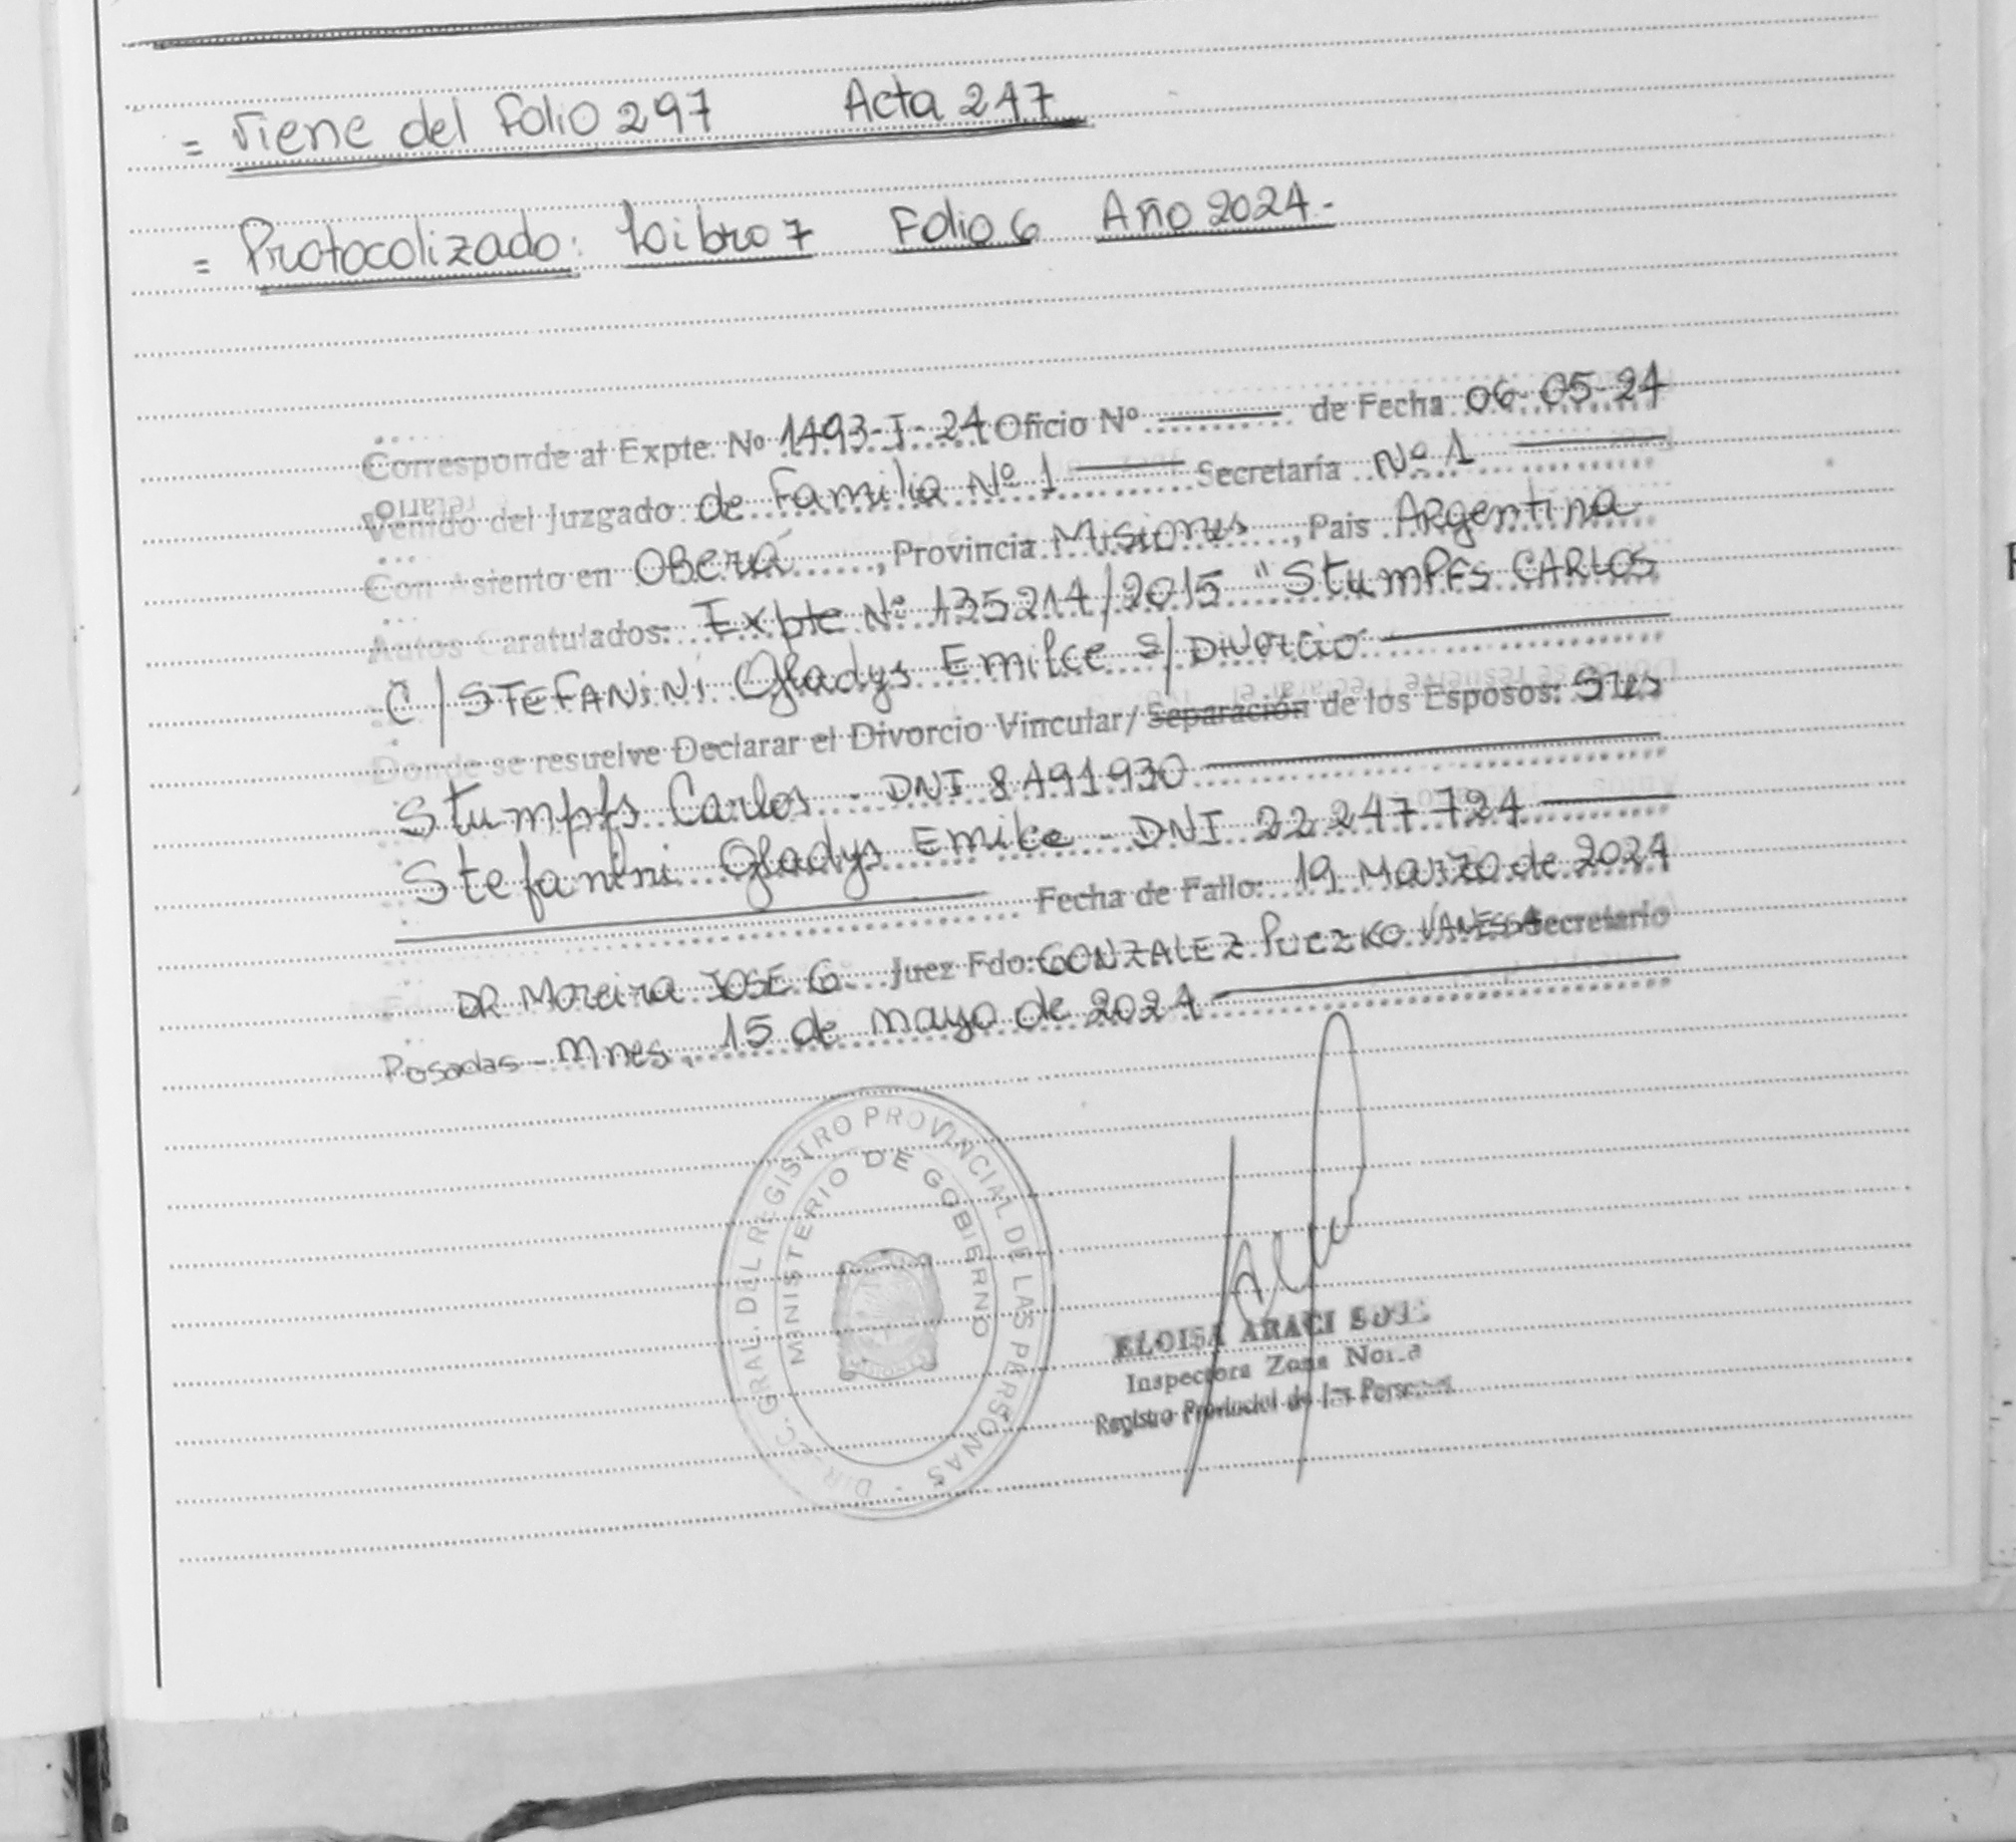 = Viene del Folio 297 Acta 247
= Protocolizado: Libro 7 Folio 6 Año 2024.-
Corresponde al Expte. Nº 1493-I-24 Oficio Nº de Fecha 06-05-24
Venido del Juzgado de Familia Nº 1 Secretaría Nº 1
Con Asiento en Oberá, Provincia Misiones, Pais Argentina
Autos Caratulados: Expte Nº 135214/2015 "Stumpfs CARLOS
C/ STEFANINI Gladys Emilce S/ Divorcio
Donde se resuelve Declarar el Divorcio Vincular/Separación de los Esposos: Sres
Stumpfs Carlos - DNI 8491930
Stefanini Gladys Emilce - DNI 22.247.724
Fecha de Fallo: 19 Marzo de 2024
DR Moreira JOSE G. Juez Fdo: GONZALEZ PUCZKO VANESSA Secretario
Posadas - Mnes, 15 de mayo de 2024
DIRECC. GRAL. DEL REGISTRO PROVINCIAL DE LAS PERSONAS
MINISTERIO DE GOBIERNO
MISIONES
ELOISA ARACI
Inspectora Zona
Registro Provincial de las Personas